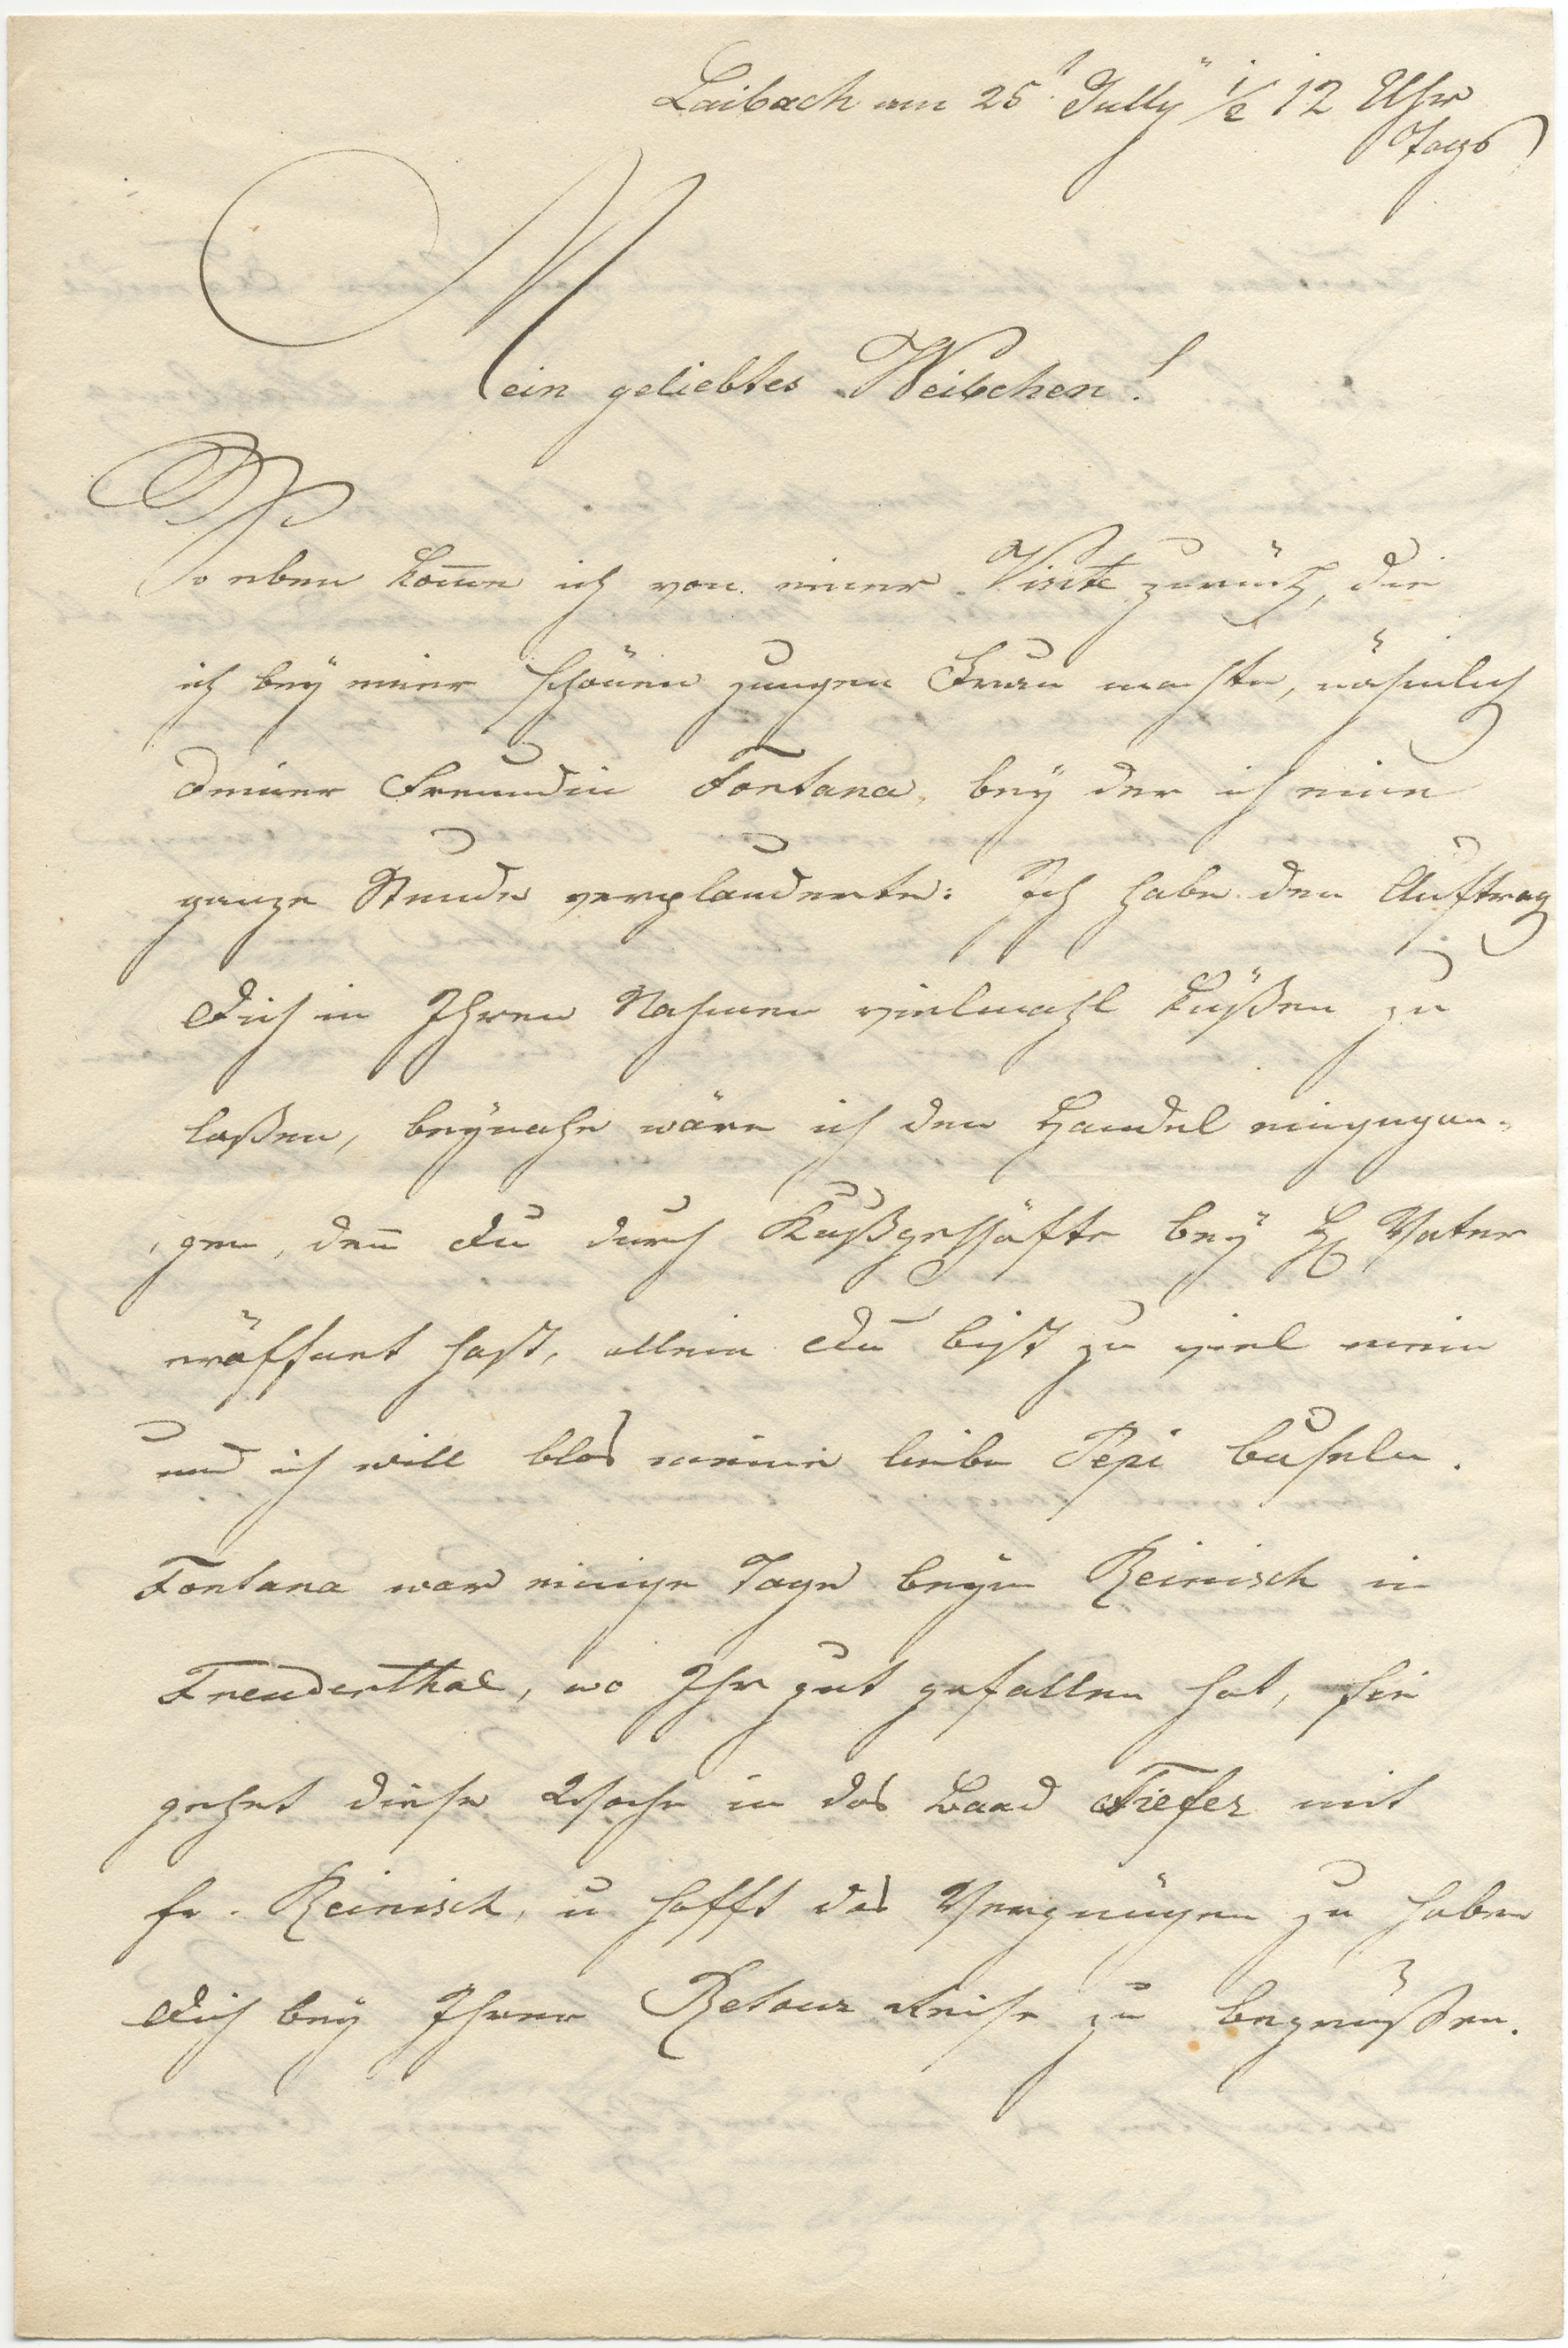 Laibach am 25t July ½ 12 Uhr
Tags
Mein geliebtes Weibchen!
So eben kom̄e ich von einer Visite zurück, die
ich bey einer schönen jungen Frau machte, nähmlich
Deiner Freundin Fontana, bey der ich eine
ganze Stunde verplauderte: Ich habe den Auftrag
Dich in Ihren Nahmen vielmahl küßen zu
laßen, beynahe wäre ich den Handel eingegan-
gen, den̄ Du durch Kußgeschäfte bey H Vater
eröffnet hast, allein Du bist zu viel mein
und ich will blos meine liebe Pepi buseln.
Fontana war einige Tage beym Reinisch in
Freudenthal, wo Ihr gut gefallen hat, sie
gehet diese Woche in das Baad Tiefer mit
fr. Reinisch, u hofft das Vergnügen zu haben
Dich bey Ihrer Retour Reise zu begrüßen.